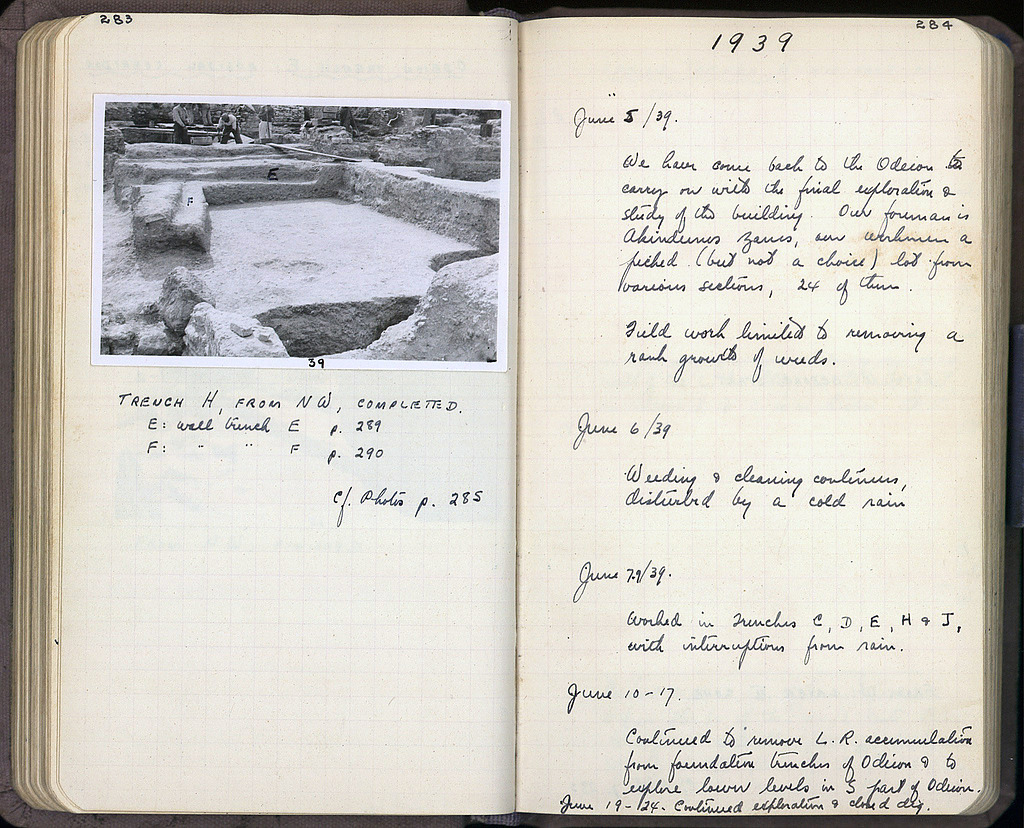 283
E
F
39
TRENCH H, FROM NW, COMPLETED.
E: wall trench E p. 289
F: " " F p. 290
Cf. Photos p. 285
284
1939
June 5/39.
We have come back to the Odeion to
carry on with the final exploration &
study of the building. Our foreman is
Akindunos Zanes, our workmen a
picked (but not a choice) lot from
various sections, 24 of them.
Field work limited to removing a
rank growth of weeds.
June 6/39
Weeding & cleaning continues,
disturbed by a cold rain
June 7-9/39.
Worked in Trenches C, D, E, H & J,
with interruptions from rain.
June 10-17.
Continued to remove L. R. accumulation
from foundation trenches of Odeion & to
explore lower levels in S part of Odeion.
June 19-24. Continued exploration & closed dig.